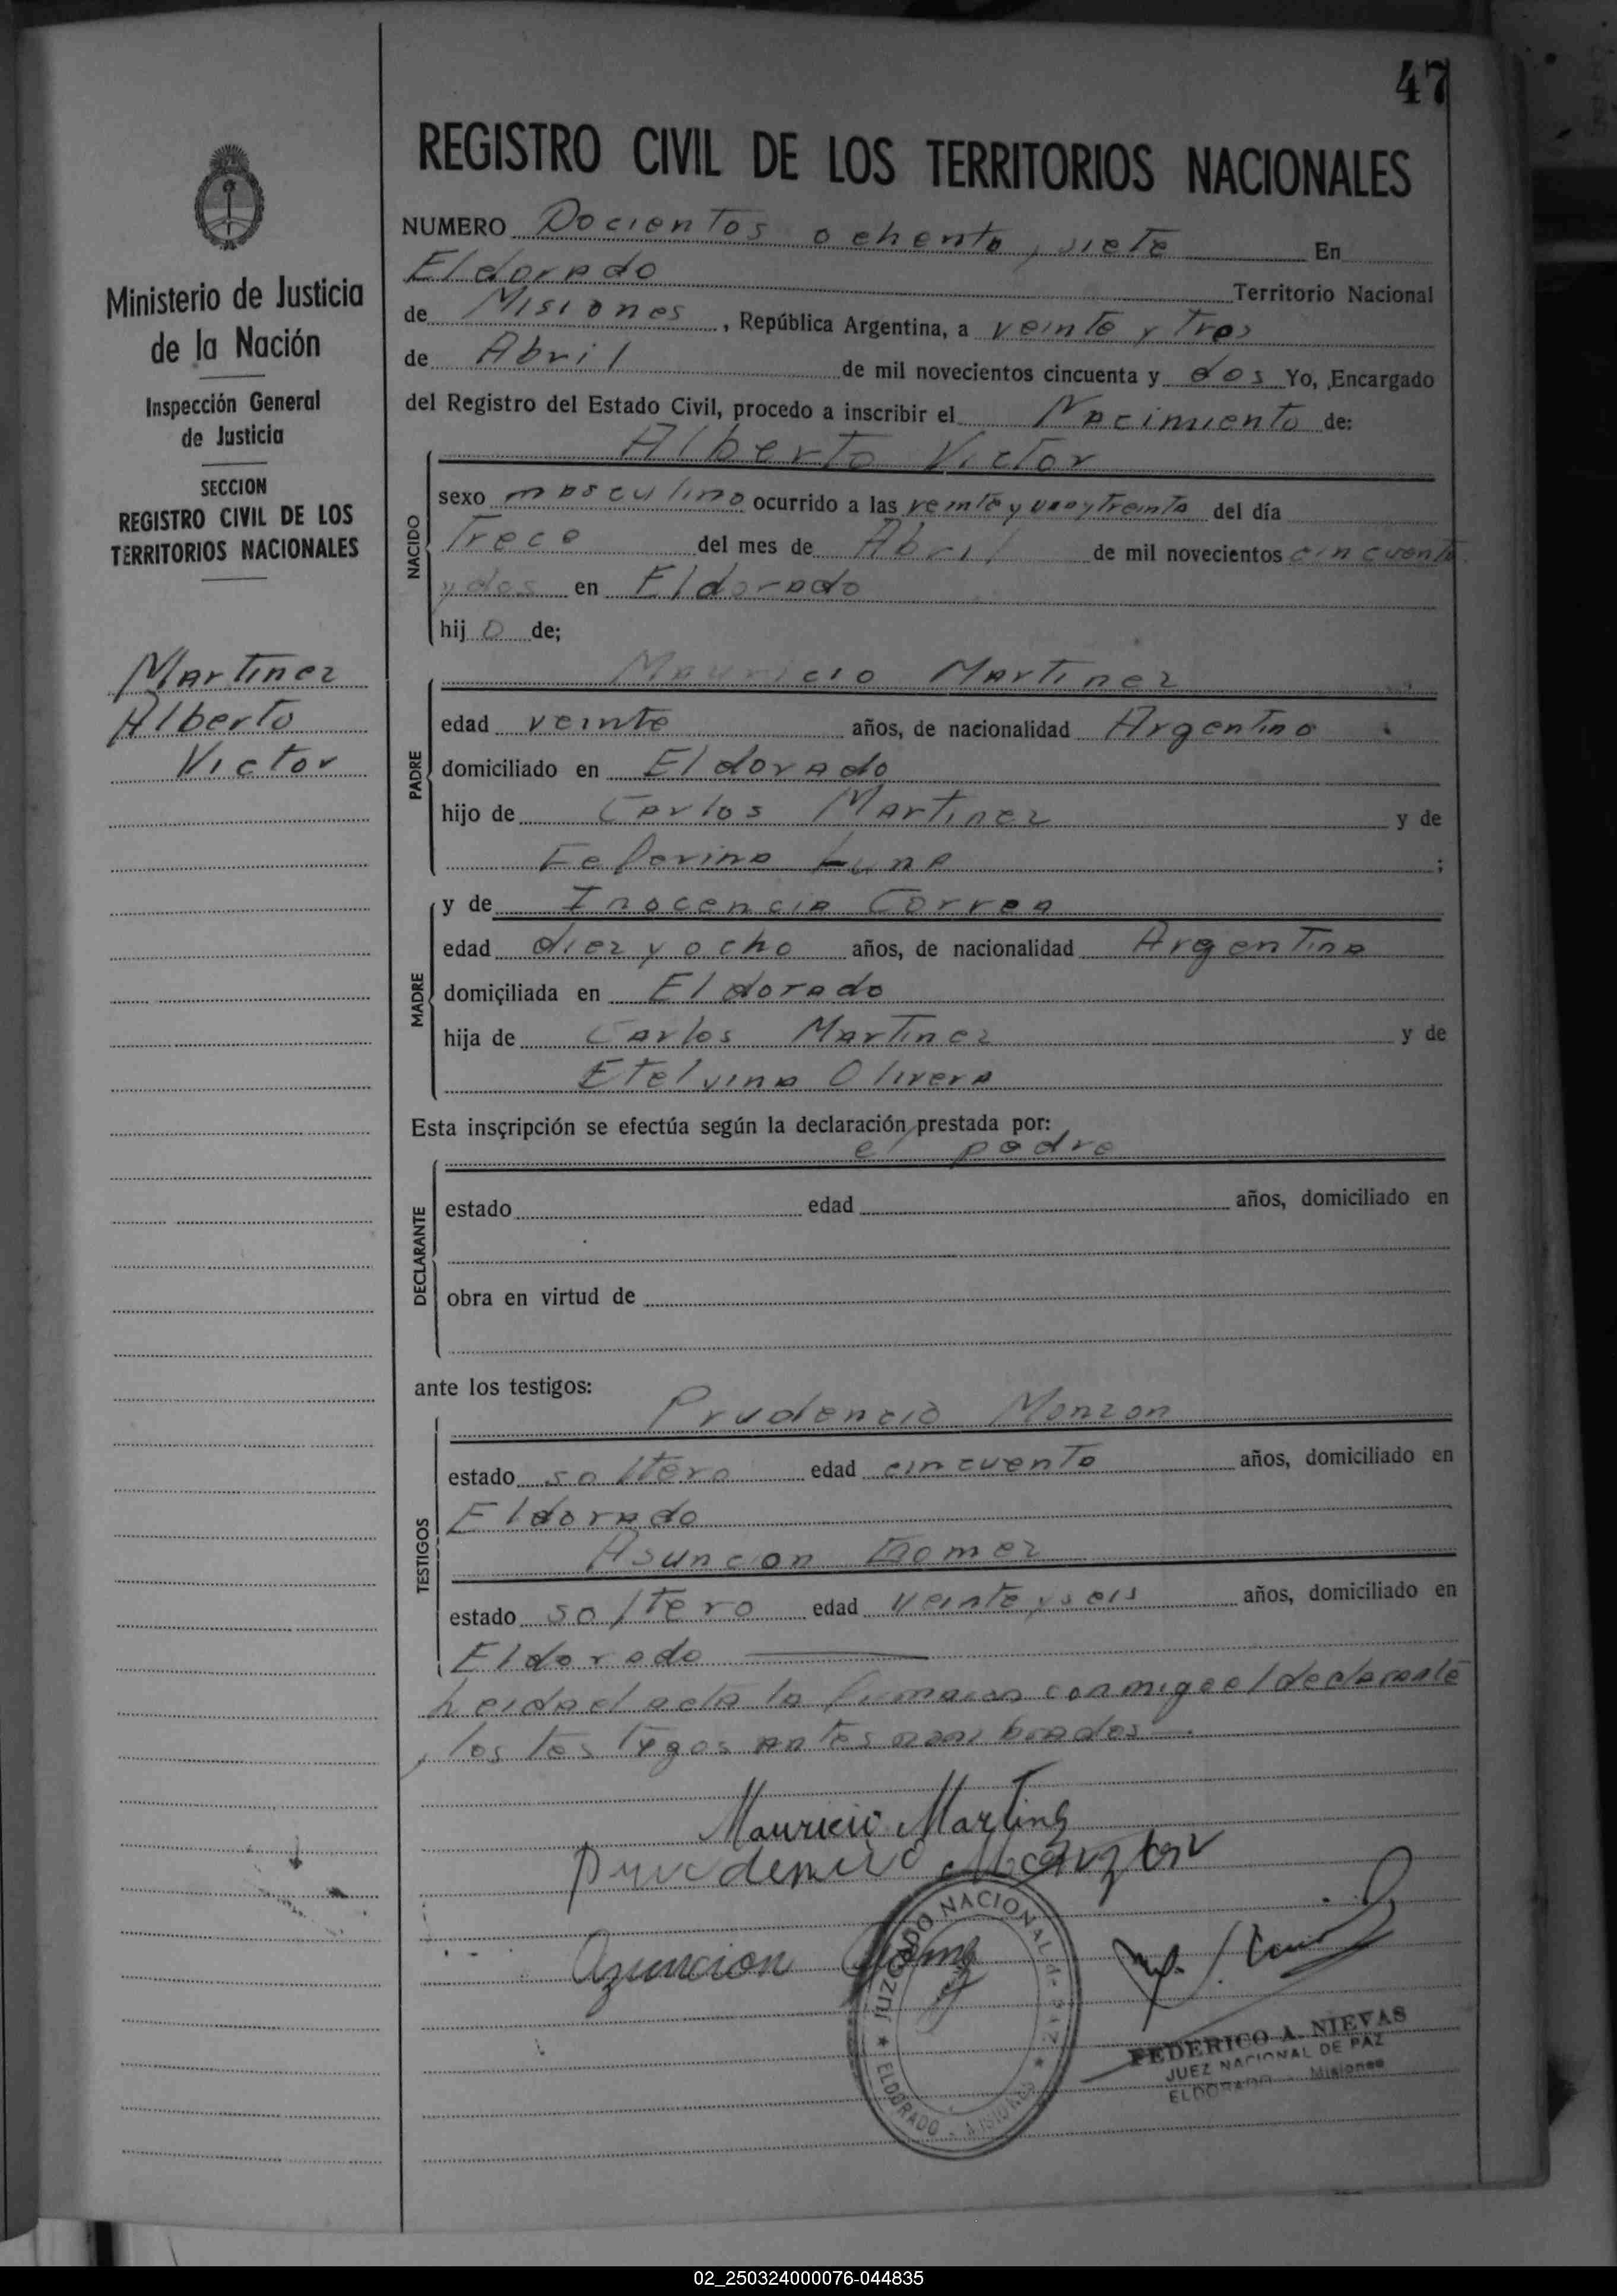 47
REGISTRO CIVIL DE LOS TERRITORIOS NACIONALES
Ministerio de Justicia
de la Nación
Inspección General
de Justicia
SECCION
REGISTRO CIVIL DE LOS
TERRITORIOS NACIONALES
Martinez
Alberto
Victor
NUMERO Docientos ochenta y siete En
Eldorado Territorio Nacional
de Misiones, República Argentina, a veinte y tres
de Abril de mil novecientos cincuenta y dos Yo, Encargado
del Registro del Estado Civil, procedo a inscribir el Nacimiento de:
Alberto Victor
NACIDO
sexo masculino ocurrido a las veinte y uno y treinta del día
Trece del mes de Abril de mil novecientos cincuenta
y dos en Eldorado
hijo de;
Mauricio Martinez
PADRE
edad veinte años, de nacionalidad Argentino
domiciliado en Eldorado
hijo de Carlos Martinez y de
Luna ;
y de Inocencia Correa
MADRE
edad diez y ocho años, de nacionalidad Argentina
domiciliada en Eldorado
hija de Carlos Martinez y de
Etelvina Olivera
Esta inscripción se efectúa según la declaración prestada por:
el padre
DECLARANTE
estado edad años, domiciliado en
obra en virtud de
ante los testigos:
Prudencio Monzon
TESTIGOS
estado soltero edad cincuenta años, domiciliado en
Eldorado
Asuncion Gomez
estado soltero edad veinte y seis años, domiciliado en
Eldorado
Leida el acta la firmaron conmigo el declarante
y los testigos antes nombrados
Mauricio Martinez
Prudencio Monzon
Azuncion Gomez
JUZGADO NACIONAL de PAZ
ELDORADO - MISIONES
FEDERICO A. NIEVAS
JUEZ NACIONAL DE PAZ
ELDORADO - Misiones
02_250324000076-044835